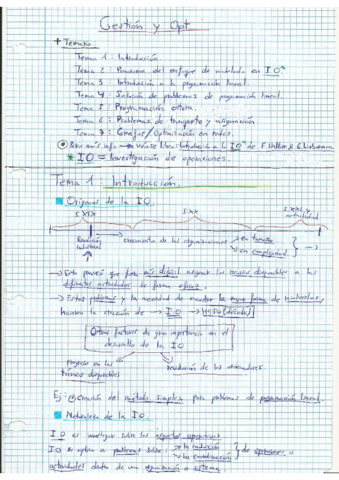 Gestión y Opt.
+ Temario
Tema 1: Introducción
Tema 2: Panorama del enfoque de modelado en IO*
Tema 3: Introducción a la programación lineal.
Tema 4: Solución de problemas de programación lineal.
Tema 5: Programación entera.
Tema 6: Problemas de transporte y asignación
Tema 7: Grafos/Optimización en redes.
Para más info → Véase libro: Introducción a la IO de F. Hillier & G. Lieberman
* IO = Investigación de operaciones.
Tema 1: Introducción.
Orígenes de la IO.
S.XIX S.XX S.XXI y actualidad
Revolución industrial → crecimiento de las organizaciones → en tamaño
→ en complejidad
→ Esto provocó que fuera más difícil asignar los recursos disponibles a las
diferentes actividades de forma eficaz.
→ Estos problemas y la necesidad de encontrar la mejor forma de resolverlos,
la creación de → IO →
Otros factores de gran importancia en el
desarrollo de la IO
progreso en las
técnicas disponibles
revolución de los ordenadores
Ej: creación del método simplex para problemas de programación lineal.
Naturaleza de la IO.
IO es investigar sobre las
IO se aplica a problemas sobre: la conducción
la coordinación
de operaciones o
actividades dentro de una organización o sistema.